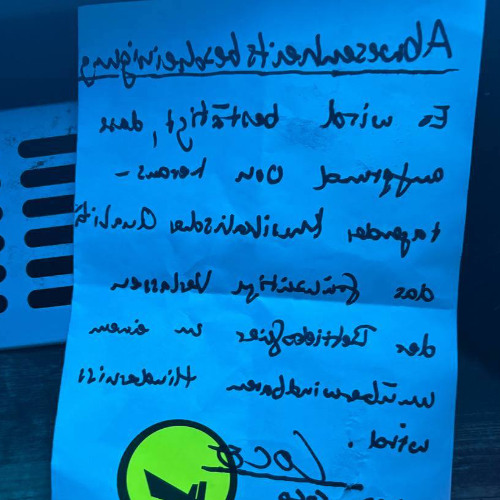 Abwesenheitsbescheinigung
Es wird bestätigt, dass
aufgrund von heraus-
ragender musikalischer Qualität
das frühzeitige Verlassen
der Bettidasfier zu einem
unüberwindbaren Hinderniss
wird.
Loco